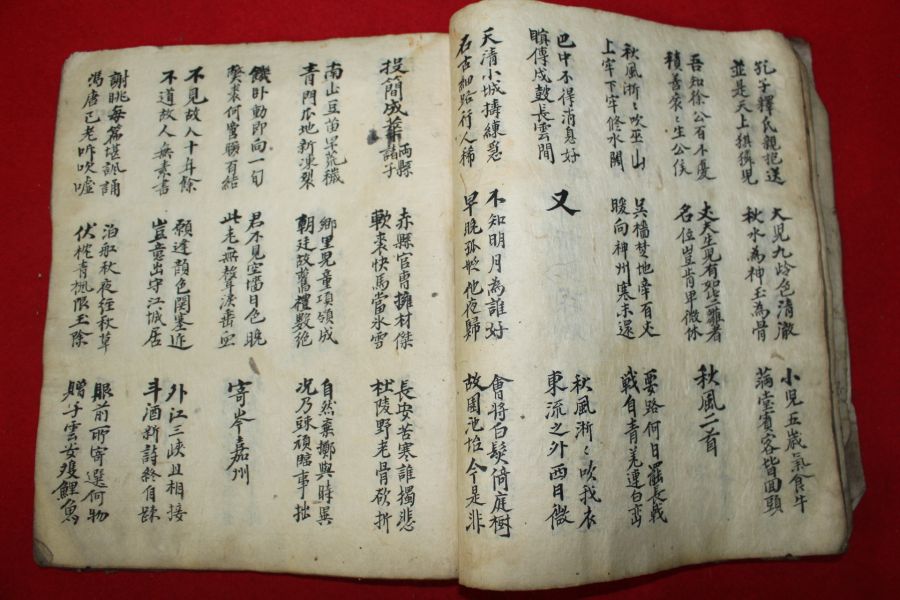 孔子釋氏親抱送
並是天上猉獜児
大児九岭色清澈
秋水為神玉為骨
小児五歲氣食牛
滿堂賓客皆回頭
吾知徐公百不憂
積善衮〻生公侯
丈夫生児有如此二雛者
名位豈肯卑微休
秋風二首
秋風淅〻吹巫山
上牢下牢修水関
吳檣楚地牽百丈
暖向神州寒未還
要路何日罷長戟
戰自青羌連白蛮
巴中不得消息好
暝傳戍鼓長雲間
又
秋風淅〻吹我衣
東流之外西日微
天清小城擣練急
石古細路行人稀
不知明月為誰好
早晚孤帆他夜歸
會將白髮倚庭樹
故園池坮今是非
投簡成華兩縣諸子
赤縣官曹擁材傑
軟裘快馬當氷雪
長安苦寒誰獨悲
杜陵野老骨欲折
南山豆苗早荒穢
青門瓜地新凍裂
鄉里児童項領成
朝廷故舊禮數絶
自然棄擲與時異
况乃踈頑臨事拙
饑卧動即向一旬
裘何啻聯百結
君不見空墻日色晚
此老無聲淚垂血
寄岑嘉州
不見故人十年餘
不道故人無素書
願逢顔色関塞遠
豈意出守江城居
外江三峽且相接
斗酒新詩終自踈
謝眺每篇堪諷誦
馮唐已老听吹噓
泊船秋夜経秋草
伏枕青楓限玉除
眼前所寄選何物
贈子雲安雙鯉魚